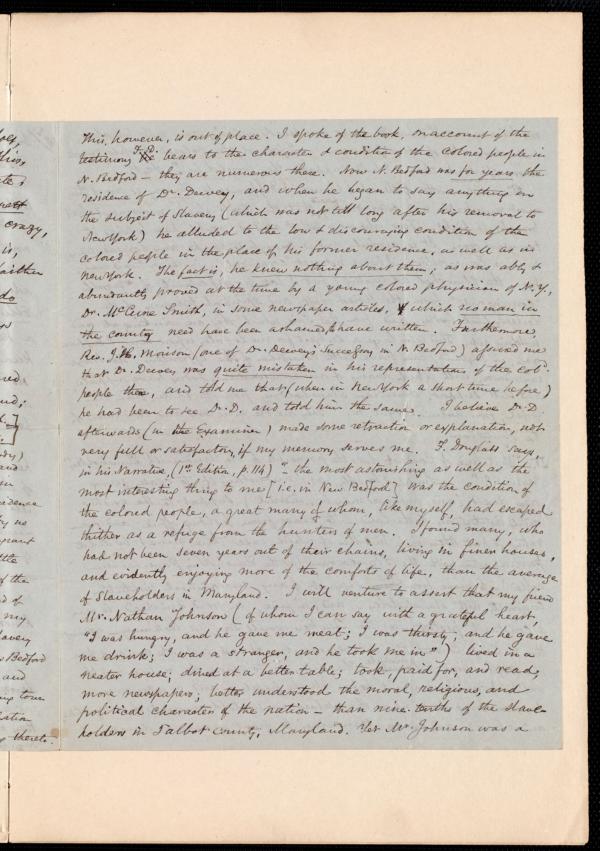 This, however, is out of place. I spoke of the book, on account of the
testimony F.D. bears to the character & condition of the colored people in
N. Bedford — they are numerous there. Now N. Bedford was for years the
residence of Dr. Dewey, and when he began to say anything on
the subject of Slavery (which was not till long after his removal to
New York) he alluded to the low & discouraging condition of the
colored people in the place of his former residence, as well as in
New York. The fact is, he knew nothing about them; as was ably &
abundantly proved at the time by a young colored physician of N.Y.,
Dr. McCune Smith, in some newspaper articles, which no man in
the country need have been ashamed to have written. Furthermore,
Rev. J.H. Morison (one of Dr. Dewey's Successors in N. Bedford) assured me
that Dr. Dewey was quite mistaken in his representations of the cold.
people there, and told me that (when in New York a short time before)
he had been to see Dr. D. and told him the same. I believe Dr. D
afterwards (in the Examiner) made some retraction or explanation, not
very full or satisfactory, if my memory serves me. F. Douglass says,
in his Narrative, (1st Edition, p. 114) "the most astonishing as well as the
most interesting thing to me [i.e. in New Bedford] was the condition of
the colored people, a great many of whom, like myself, had escaped
thither as a refuge from the hunters of men. I found many, who
had not been seven years out of their chains, living in finer houses,
and evidently enjoying more of the comforts of life, than the average
of Slaveholders in Maryland. I will venture to assert that my friend
Mr. Nathan Johnson (of whom I can say with a grateful heart,
"I was hungry, and he gave me meat; I was thirsty, and he gave
me drink; I was a stranger, and he took me in") lived in a
neater house; dined at a better table; took, paid for, and read,
more newspapers; better understood the moral, religious, and
political character of the nation — than nine tenths of the slave-
holders in Talbot County, Maryland. Yet Mr. Johnson was a
crazy,
is,
do
Bedford
and
thereto.